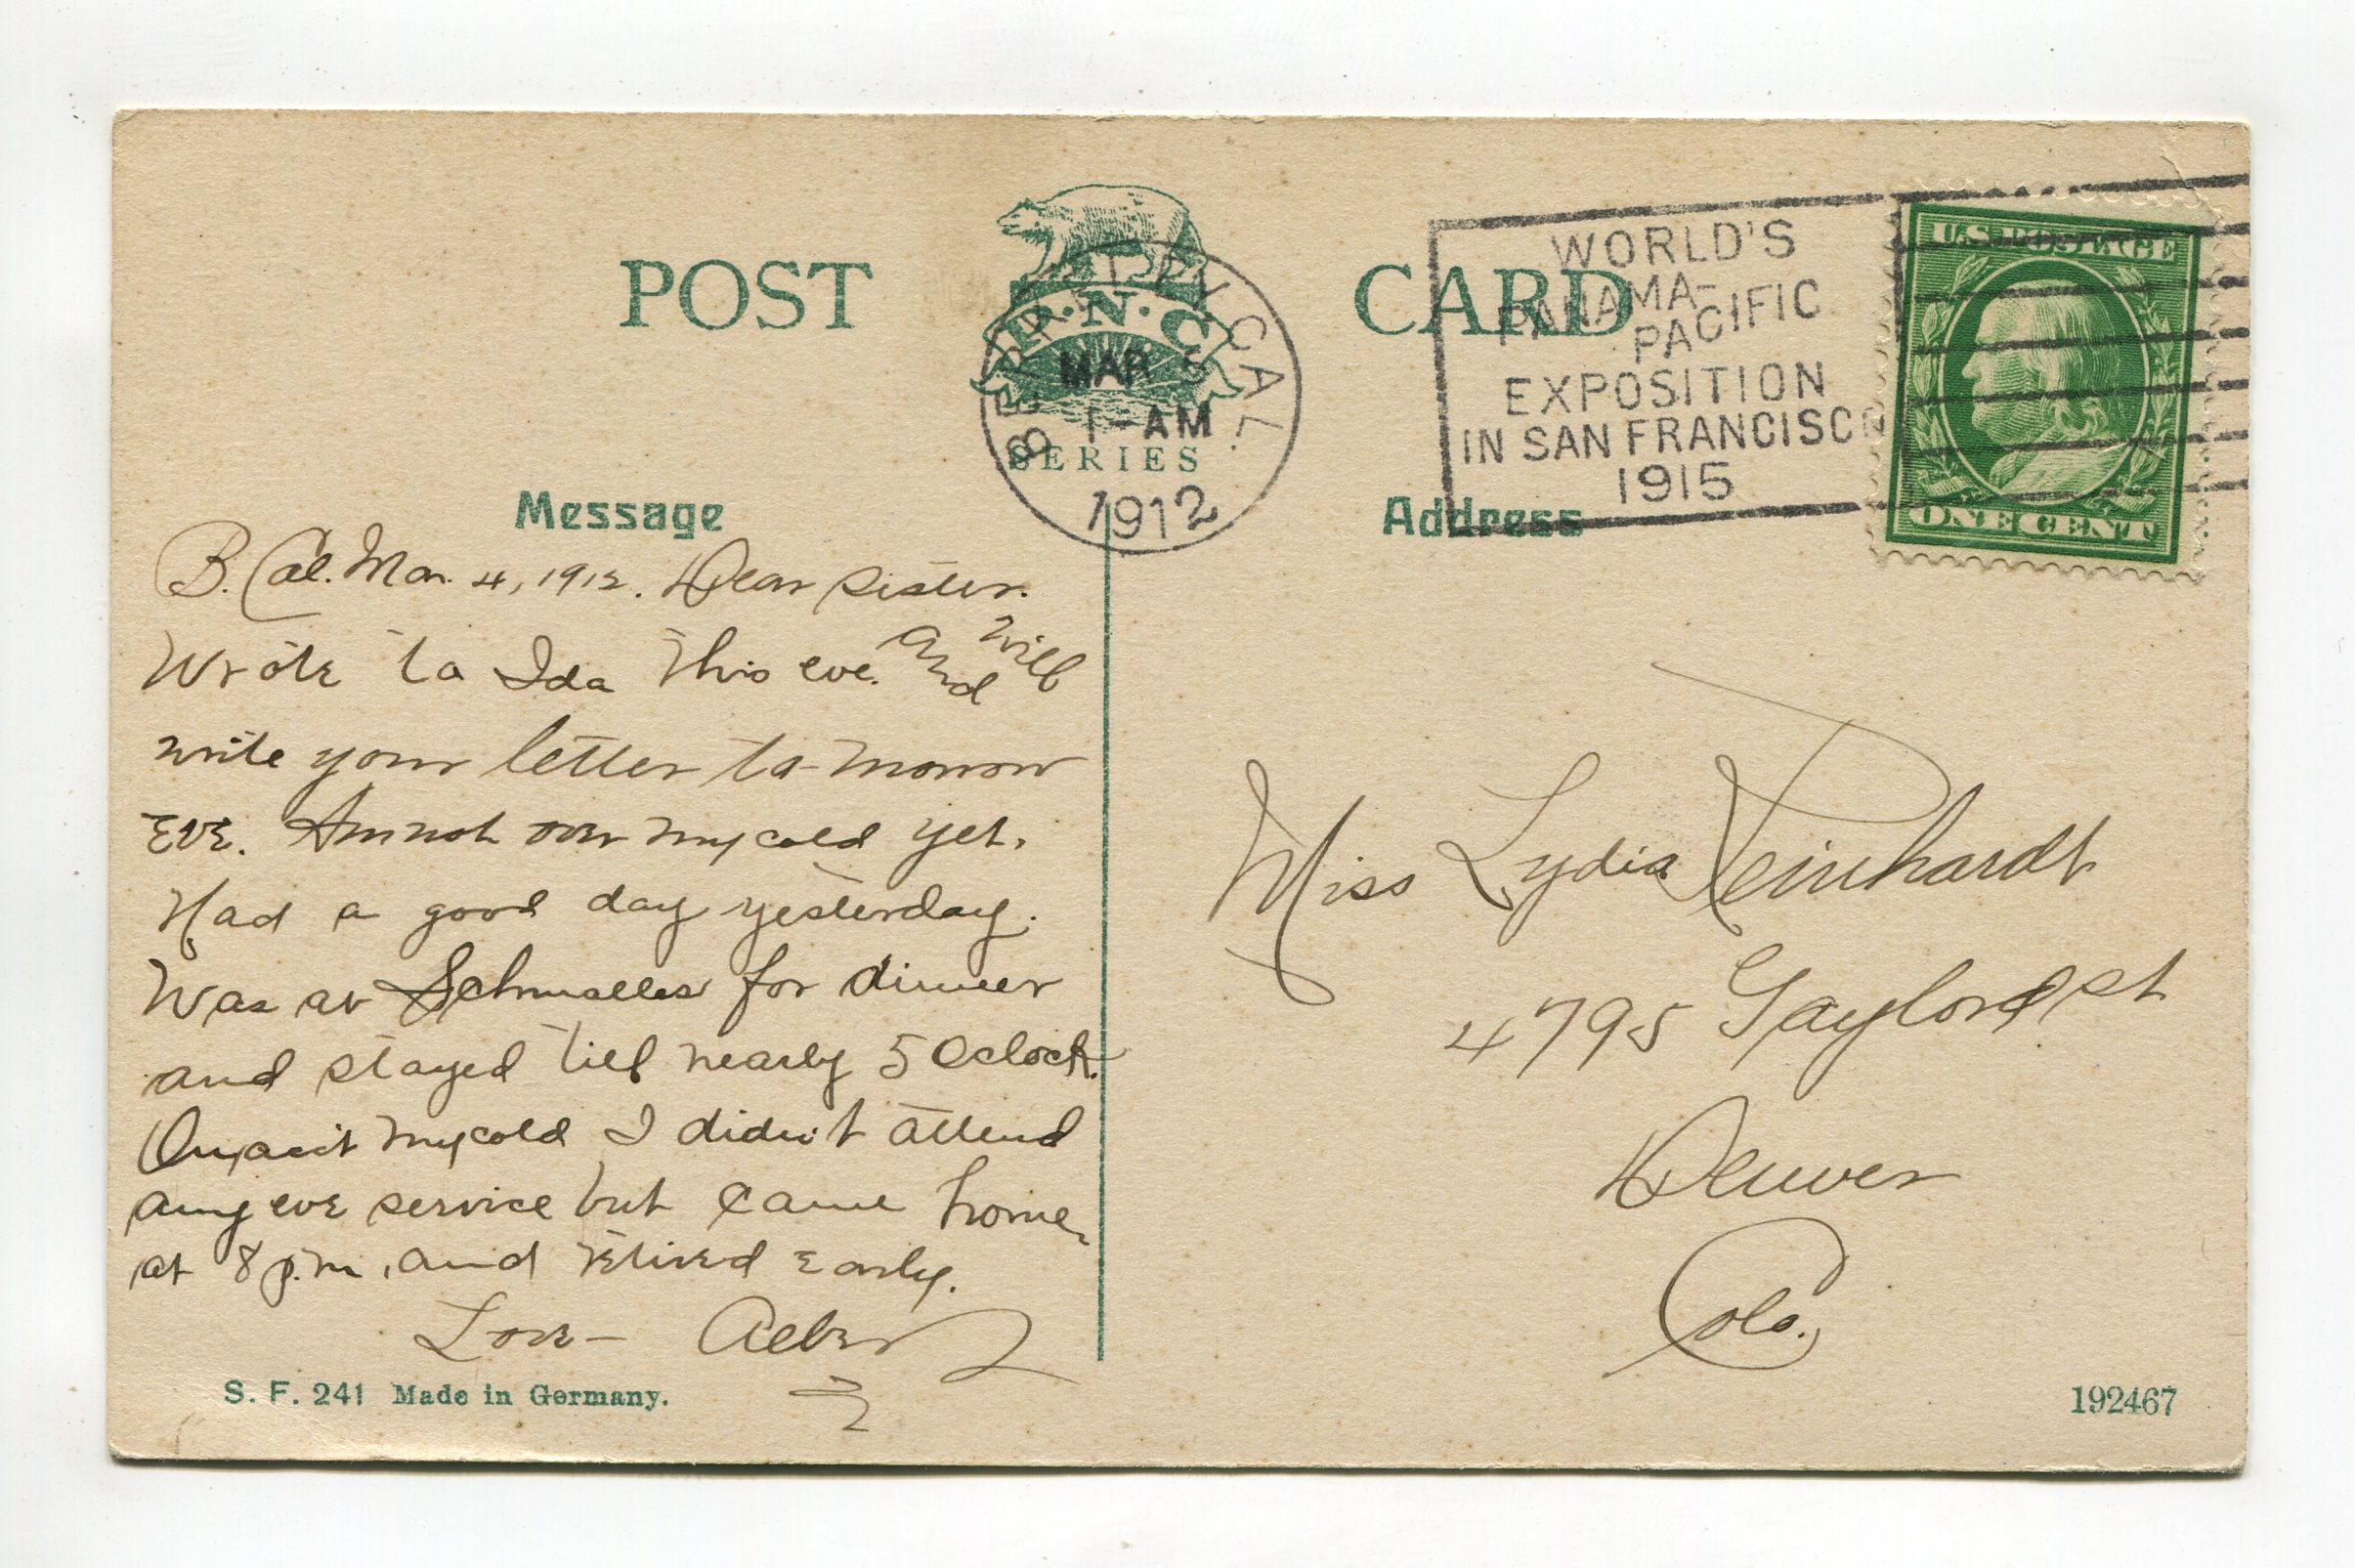 POST CARD
P.N.C.
SERIES
BERKELEY, CAL.
MAR 5
1-AM
1912
WORLD'S
PANAMA-
PACIFIC
EXPOSITION
IN SAN FRANCISCO
1915
U.S. POSTAGE
ONE CENT
Message
B. Cal. Mar. 4, 1912. Dear Sister.
Wrote to Ida this eve. and will
write your letter to-morrow
eve. Am not over my cold yet.
Had a good day yesterday.
Was at for dinner
and stayed till nearly 5 Oclock.
On acct my cold I didn't attend
any eve service but came home
at 8 p.m. and retired early.
Love-
S. F. 241 Made in Germany.
Address
Miss Lydia Reinhardt
4795 Gaylord st
Denver
Colo.
192467